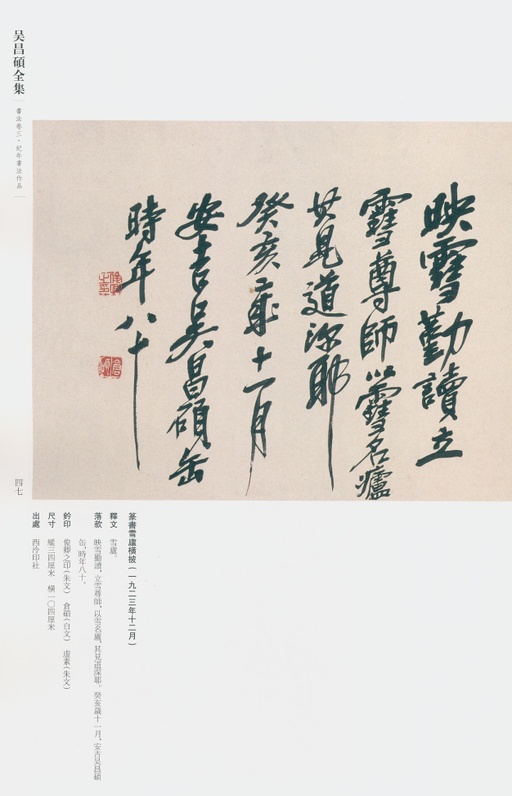 吴昌碩全集
書法卷三·紀年書法作品
映雪勤讀立
雪尊師以雪名廬
其見道深耶
癸亥歲十一月
安吉吴昌碩缶
時年八十
四七
篆書雪廬横披(一九二三年十二月)
釋文 雪廬。
落款 映雪勤讀,立雪尊師,以雪名廬,其見道深耶。癸亥歲十一月,安吉吴昌碩
缶,時年八十。
鈐印 俊卿之印(朱文) 倉碩(白文) 虚素(朱文)
尺寸 縱三四厘米 横一〇四厘米
出處 西泠印社